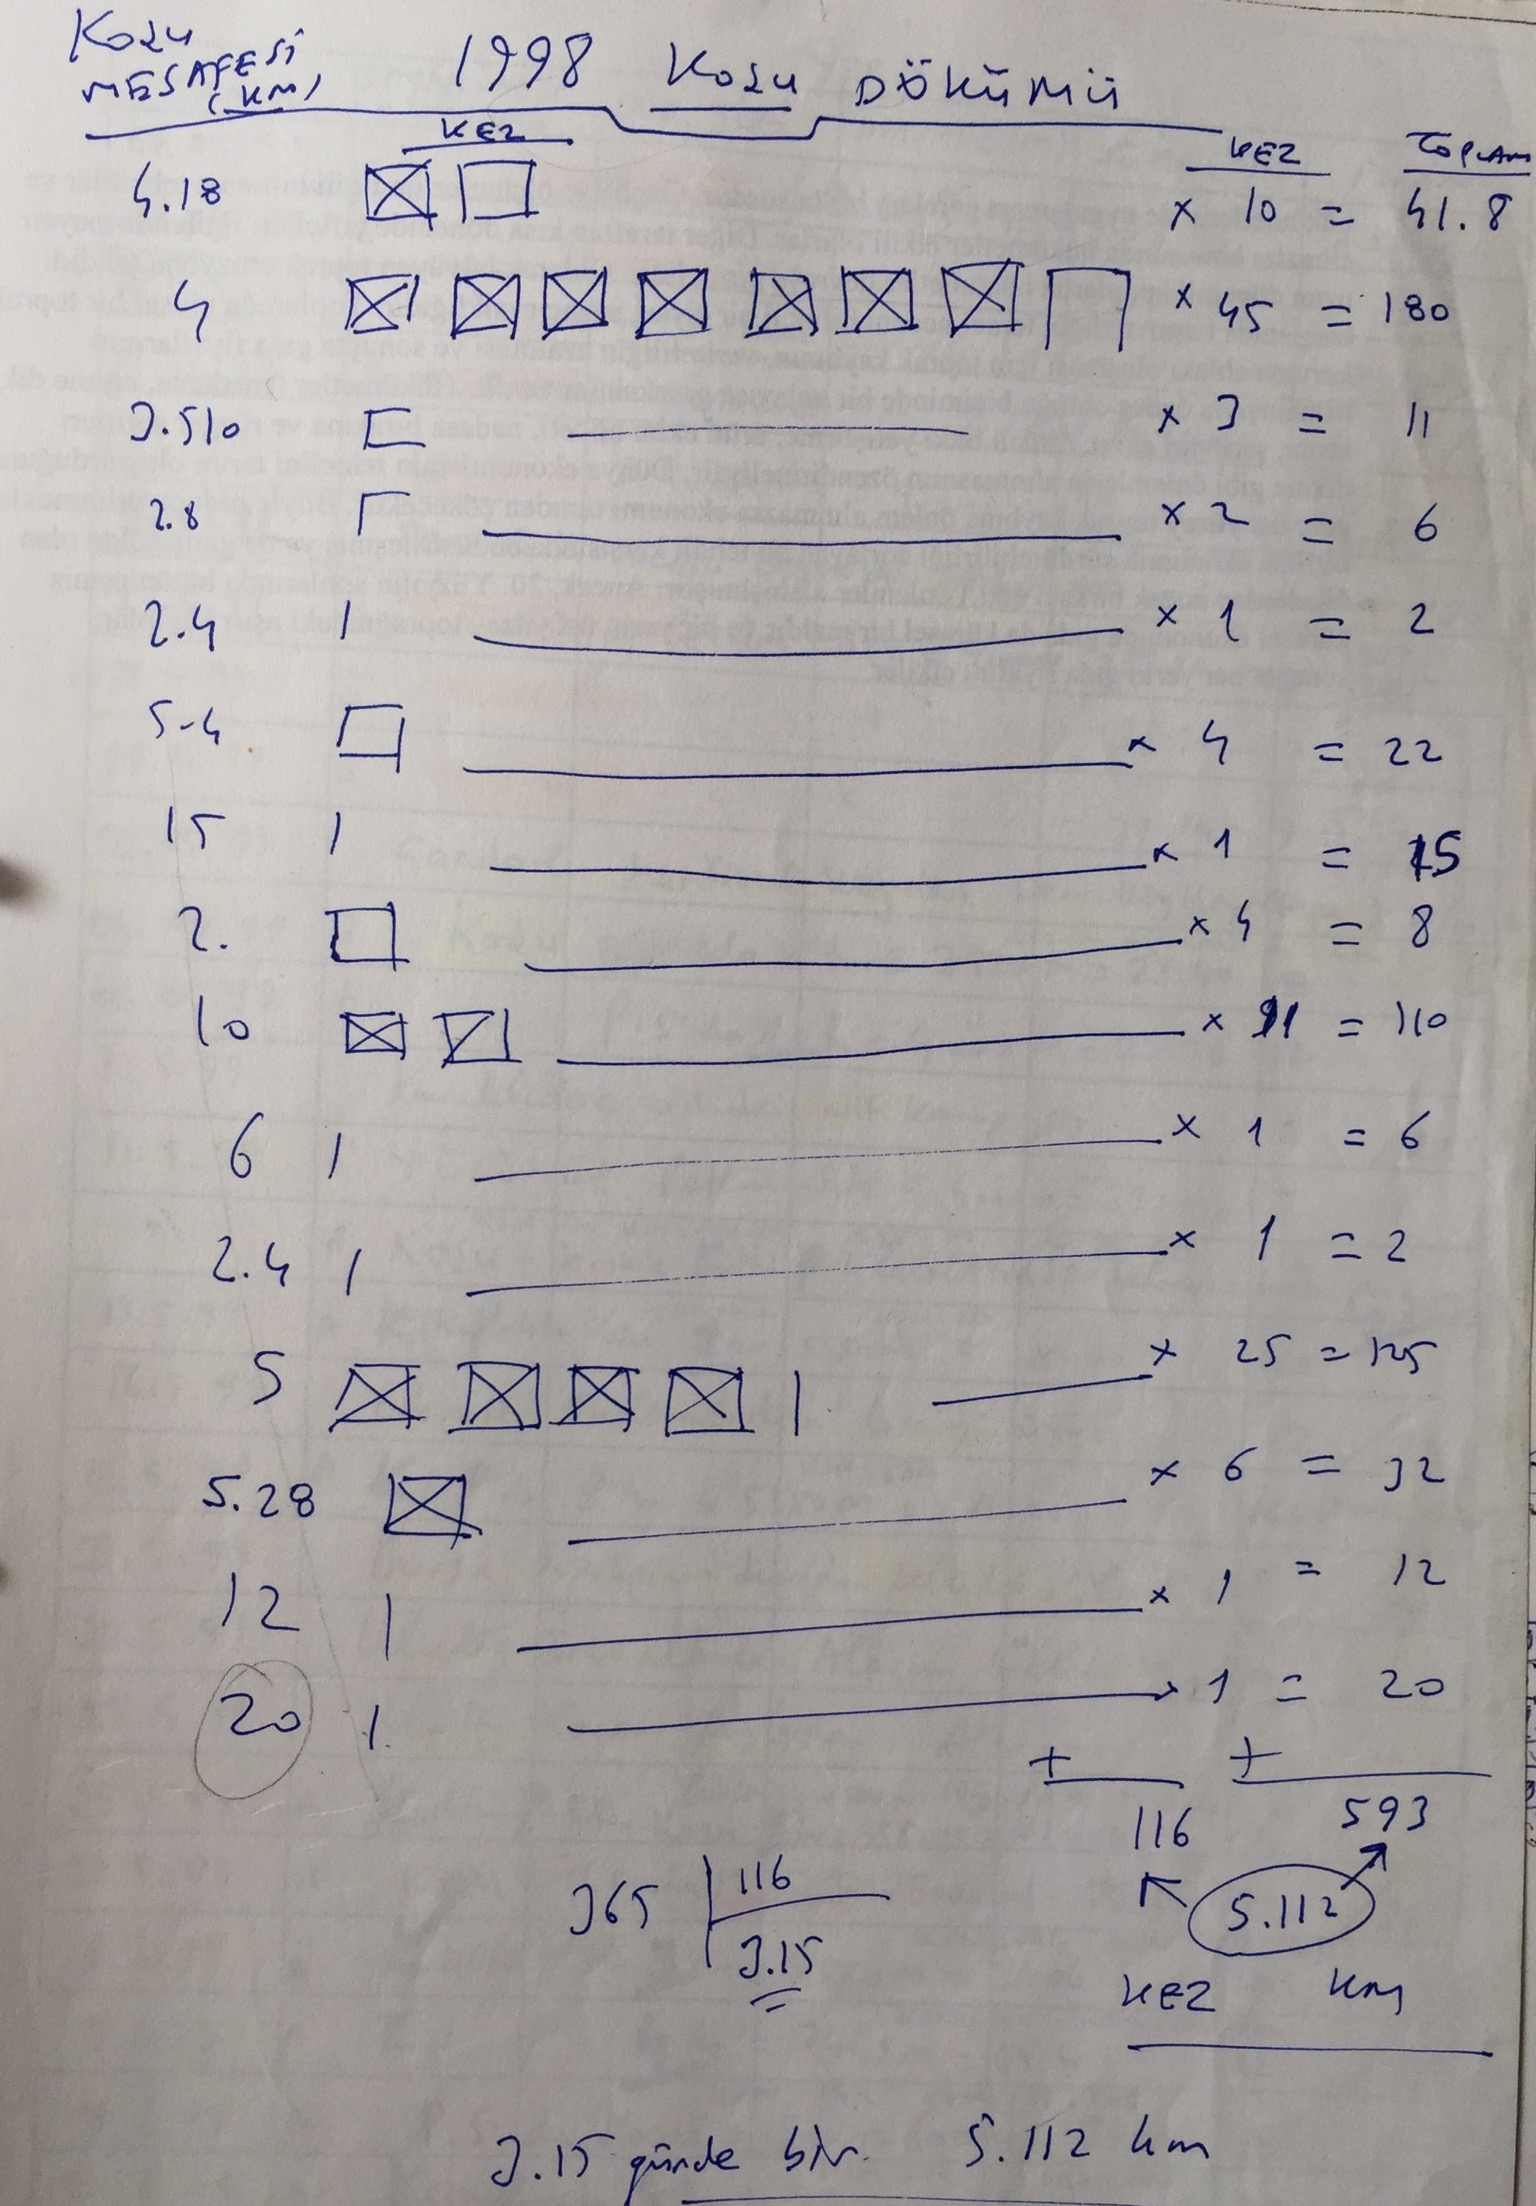 KOŞU
MESAFESİ
(KM)
1998 KOŞU DÖKÜMÜ
KEZ KEZ TOPLAM
4.18 x 10 = 41.8
4 x 45 = 180
3.510 x 3 = 11
2.8 x 2 = 6
2.4 1 x 1 = 2
5.4 x 4 = 22
15 1 x 1 = 15
2. x 4 = 8
10 x 11 = 110
6 1 x 1 = 6
2.4 1 x 1 = 2
5 1 x 25 = 125
5.28 x 6 = 32
12 1 x 1 = 12
20 1 x 1 = 20
+ +
116 593
365 116
3.15
5.112
KEZ KM
3.15 günde bir. 5.112 km